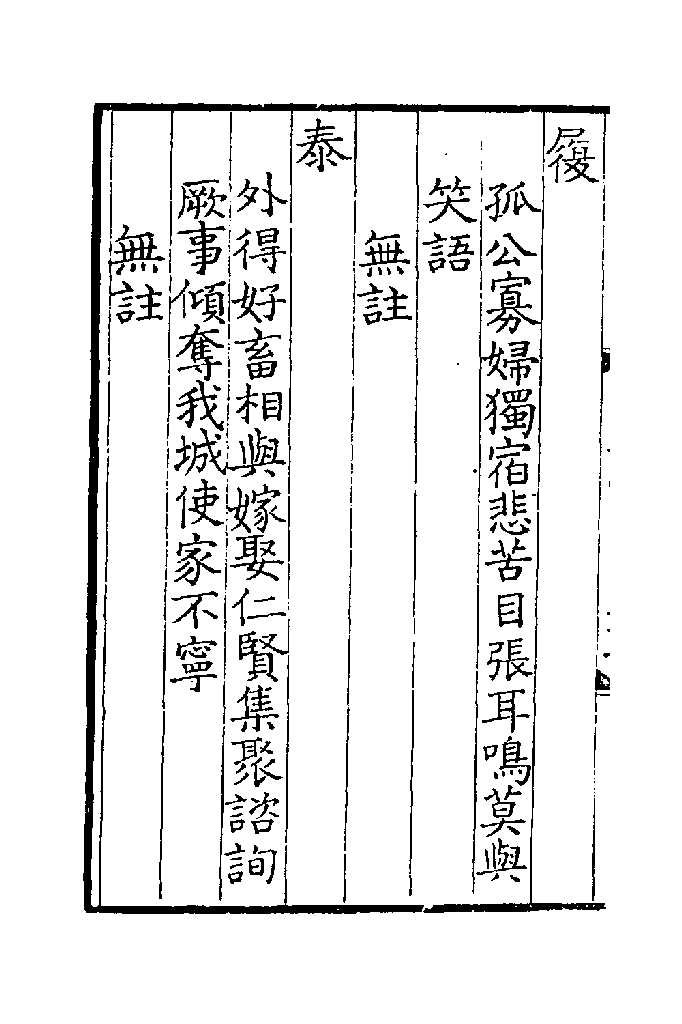 履
孤公寡婦獨宿悲苦目張耳鳴莫與
笑語
無註
泰
外得好畜相與嫁娶仁賢集聚諮詢
厥事傾奪我城使家不寧
無註